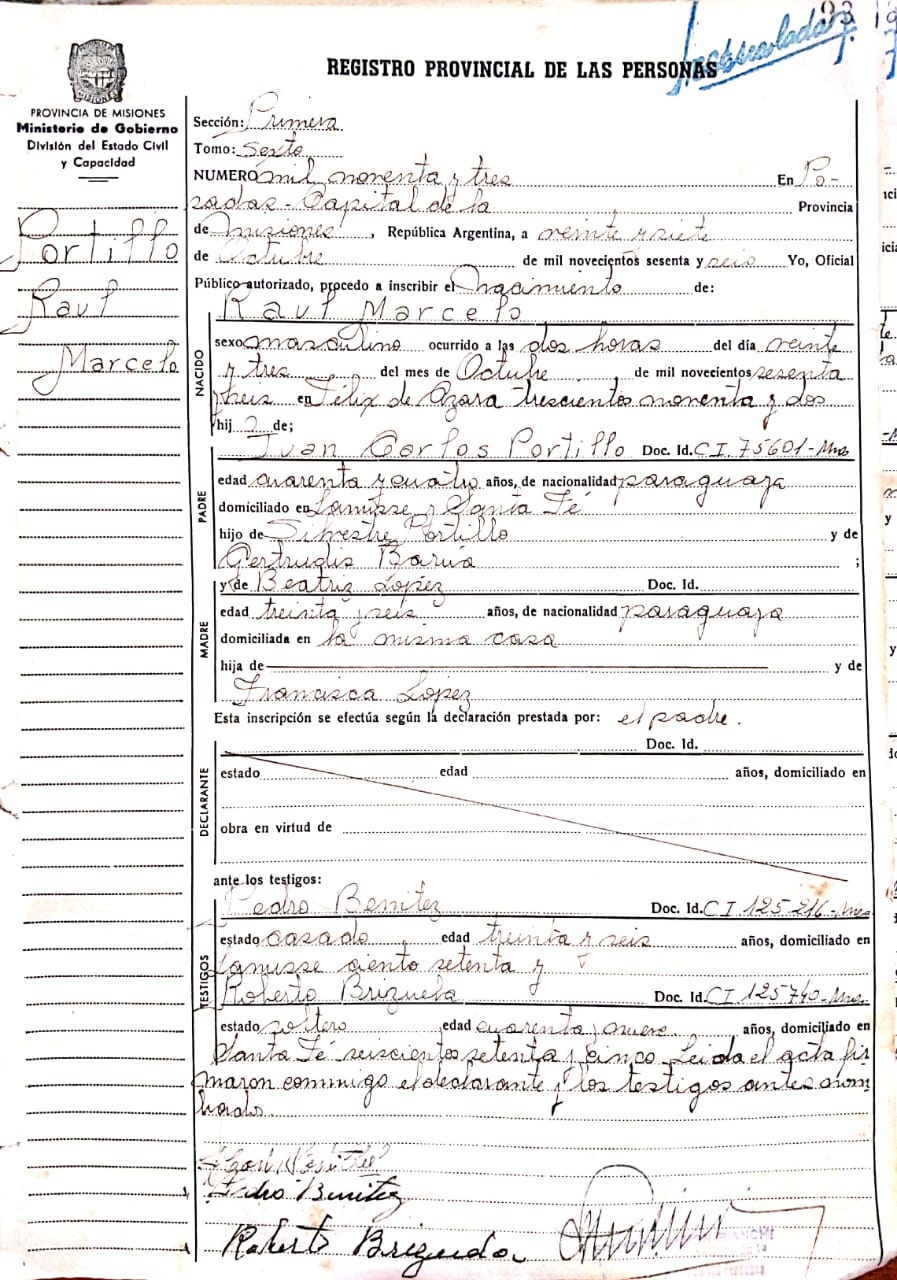 93
REGISTRO PROVINCIAL DE LAS PERSONAS
PROVINCIA DE MISIONES
Ministerio de Gobierno
División del Estado Civil
y Capacidad
Portillo
Raul
Marcelo
Sección: Primera
Tomo: Sexto
NUMERO mil noventa y tres En Po-
sadas - Capital de la Provincia
de Misiones, República Argentina, a veinte y siete
de Octubre de mil novecientos sesenta y seis Yo, Oficial
Público autorizado, procedo a inscribir el Nacimiento de:
Raul Marcelo
NACIDO
sexo masculino ocurrido a las dos horas del día veinte
y tres del mes de Octubre de mil novecientos sesenta
y seis en Félix de Azara trescientos noventa y dos
hij de;
Juan Carlos Portillo Doc. Id. CI. 75601-Mns
PADRE
edad cuarenta y cuatro años, de nacionalidad paraguaya
domiciliado en Lanusse y Santa Fé
hijo de Silvestre Portillo y de
Gertrudis Barúa ;
y de Beatriz Lopez Doc. Id.
MADRE
edad treinta y seis años, de nacionalidad paraguaya
domiciliada en la misma casa
hija de y de
Francisca Lopez
Esta inscripción se efectúa según la declaración prestada por: el padre.
Doc. Id.
DECLARANTE
estado edad años, domiciliado en
obra en virtud de
ante los testigos:
Pedro Benitez Doc. Id. CI 125-216-Mns
TESTIGOS
estado casado, edad treinta y seis años, domiciliado en
Lanusse ciento setenta y
Roberto Brizuela Doc. Id. CI 125740-Mns
estado soltero, edad cuarenta y nueve años, domiciliado en
Santa Fé seiscientos setenta y cinco. Leida el acta fir
maron conmigo el declarante y los testigos antes nom
brado
Pedro Benitez
Roberto Brizuela